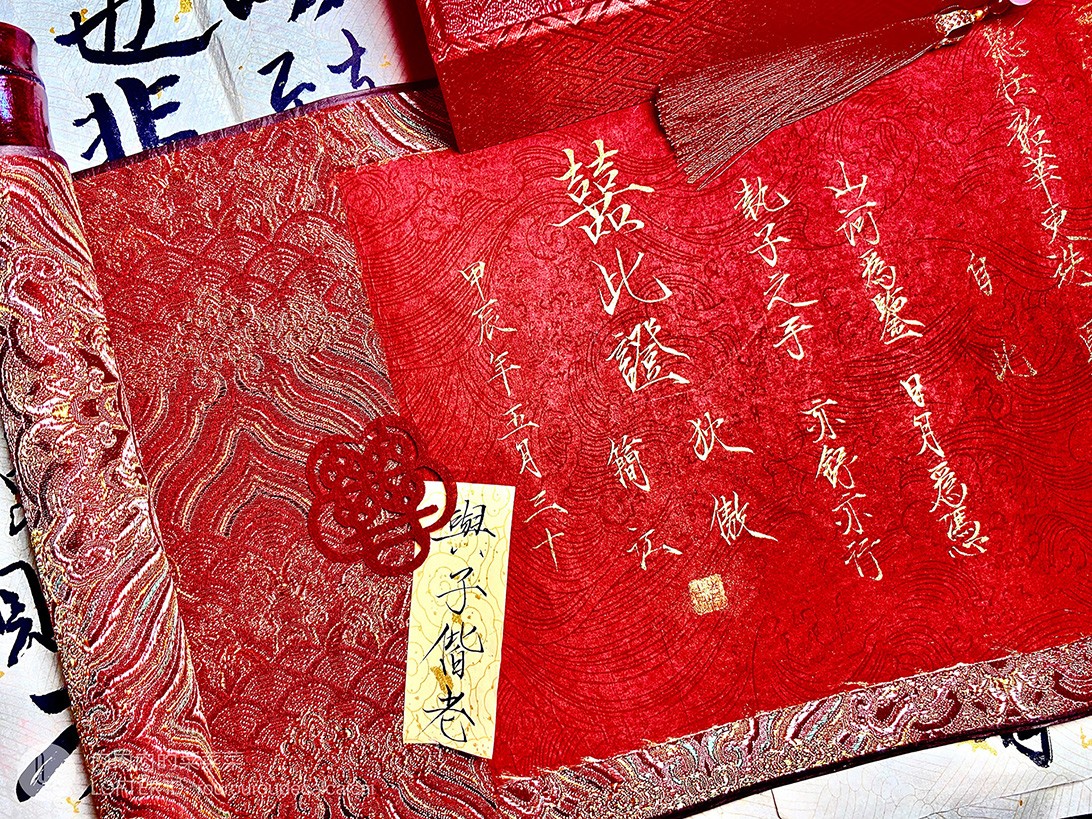 任韶華更迭
自此
山河為鑒 日月為憑
執子之手 亦舒亦行
狄傲
簡
囍
此證
甲辰年五月二十
與子偕老
也非